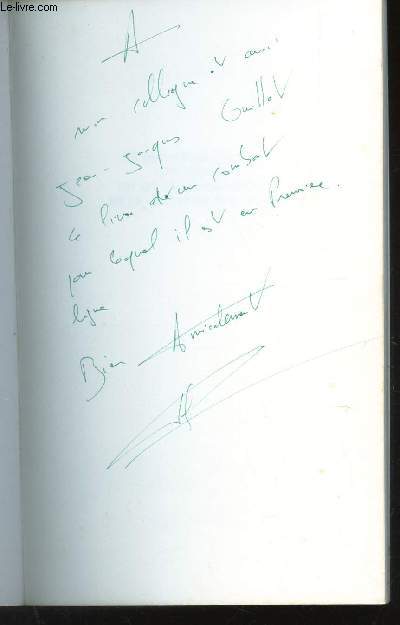 Le-livre.com
A
mon collègue et ami
Jean-Jacques Guillet
Ce livre d'un combat
pour lequel il est en Première
ligne.
Bien Amicalement